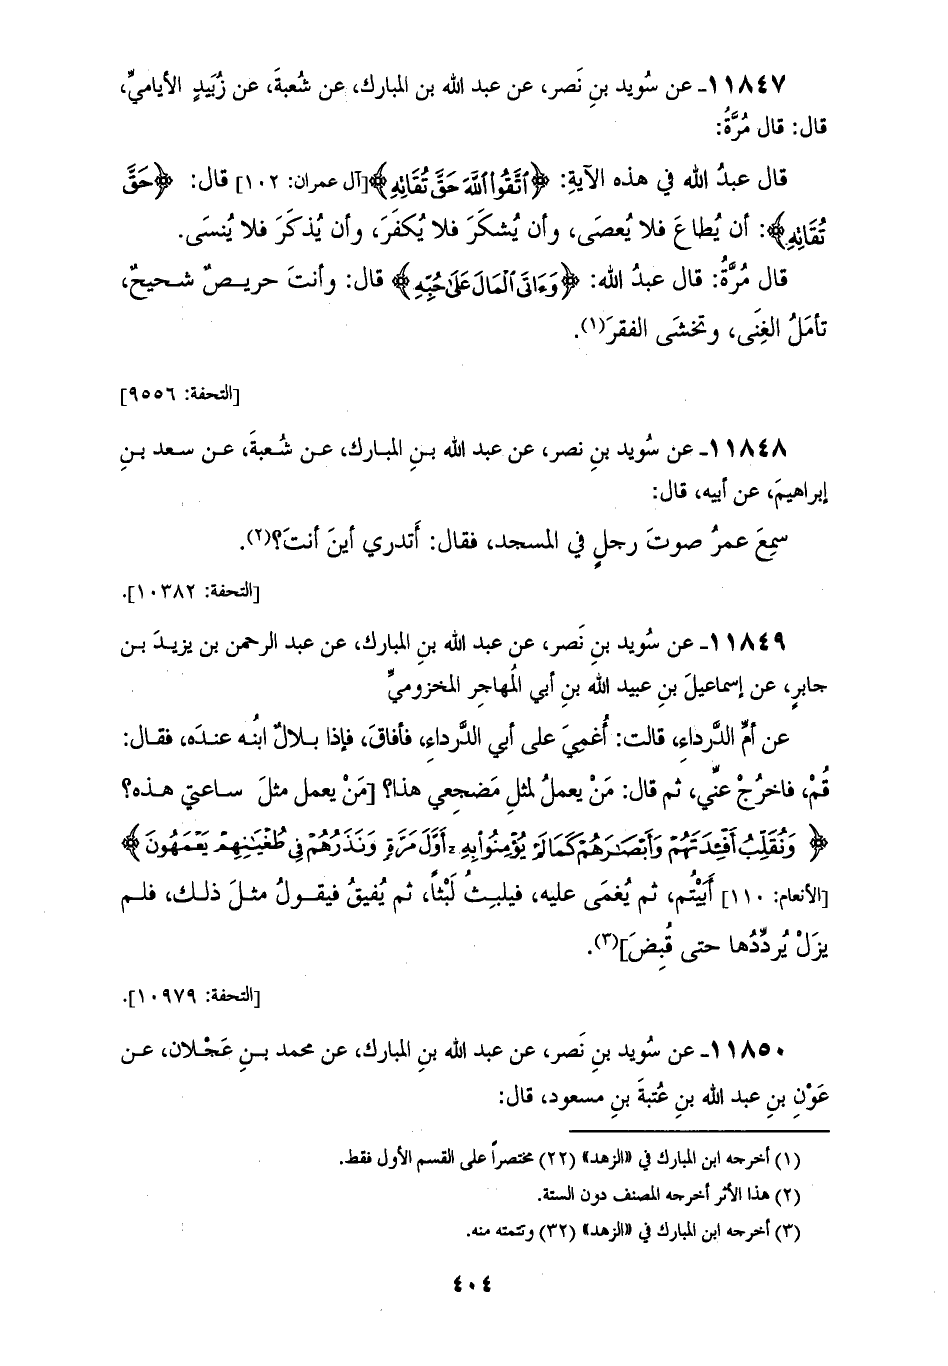 ١١٨٤٧ـ عن سُويد بنِ نَصر، عن عبد الله بن المبارك، عن شُعبةَ، عن زُبَيدٍ الأياميِّ،
قال: قال مُرَّةُ:
قال عبدُ الله في هذه الآيةِ: ﴿ٱتَّقُوا۟ ٱللَّهَ حَقَّ تُقَاتِهِۦ﴾[آل عمران: ١٠٢] قال: ﴿حَقَّ
تُقَاتِهِۦ﴾: أن يُطاعَ فلا يُعصَى، وأن يُشكَرَ فلا يُكفَرَ، وأن يُذكَرَ فلا يُنسَى.
قال مُرَّةُ: قال عبدُ الله: ﴿وَءَاتَى ٱلْمَالَ عَلَىٰ حُبِّهِۦ﴾ قال: وأنتَ حريصٌ شحيحٌ،
تأمَلُ الغِنَى، وتخشَى الفقرَ(١).
[التحفة: ٩٥٥٦]
١١٨٤٨ـ عن سُويد بنِ نصر، عن عبد الله بنِ المبارك، عن شُعبةَ، عن سعد بنِ
إبراهيمَ، عن أبيه، قال:
سمِعَ عمرُ صوتَ رجلٍ في المسجد، فقال: أتدري أينَ أنتَ؟(٢).
[التحفة: ١٠٣٨٢].
١١٨٤٩ـ عن سُويد بنِ نَصر، عن عبد الله بنِ المبارك، عن عبد الرحمن بن يزيدَ بن
جابرٍ، عن إسماعيلَ بنِ عبيد الله بنِ أبي المُهاجرِ المخزوميِّ
عن أمِّ الدَّرداءِ، قالت: أُغمِيَ على أبي الدَّرداءِ، فأفاقَ، فإذا بلالٌ ابنُه عندَه، فقال:
قُمْ، فاخرُجْ عنِّي، ثم قال: مَنْ يعملُ لمثلِ مَضجعِي هذا؟ [مَنْ يعمل مثلَ ساعتي هذه؟
﴿وَنُقَلِّبُ أَفْـِٔدَتَهُمْ وَأَبْصَـٰرَهُمْ كَمَا لَمْ يُؤْمِنُوا۟ بِهِۦٓ أَوَّلَ مَرَّةٍ وَنَذَرُهُمْ فِى طُغْيَـٰنِهِمْ يَعْمَهُونَ﴾
[الأنعام: ١١٠] أَبَيْتُم، ثم يُغمَى عليه، فيلبثُ لَبْثاً، ثم يُفيقُ فيقولُ مثلَ ذلك، فلم
يزَلْ يُردِّدُها حتى قُبِضَ](٣).
[التحفة: ١٠٩٧٩].
١١٨٥٠ـ عن سُويد بنِ نَصر، عن عبد الله بنِ المبارك، عن محمد بنِ عَجْلان، عن
عَوْنِ بنِ عبد الله بنِ عُتبةَ بنِ مسعود، قال:
(١) أخرجه ابن المبارك في «الزهد» (٢٢) مختصراً على القسم الأول فقط.
(٢) هذا الأثر أخرجه المصنف دون الستة.
(٣) أخرجه ابن المبارك في «الزهد» (٣٢) وتتمته منه.
٤٠٤